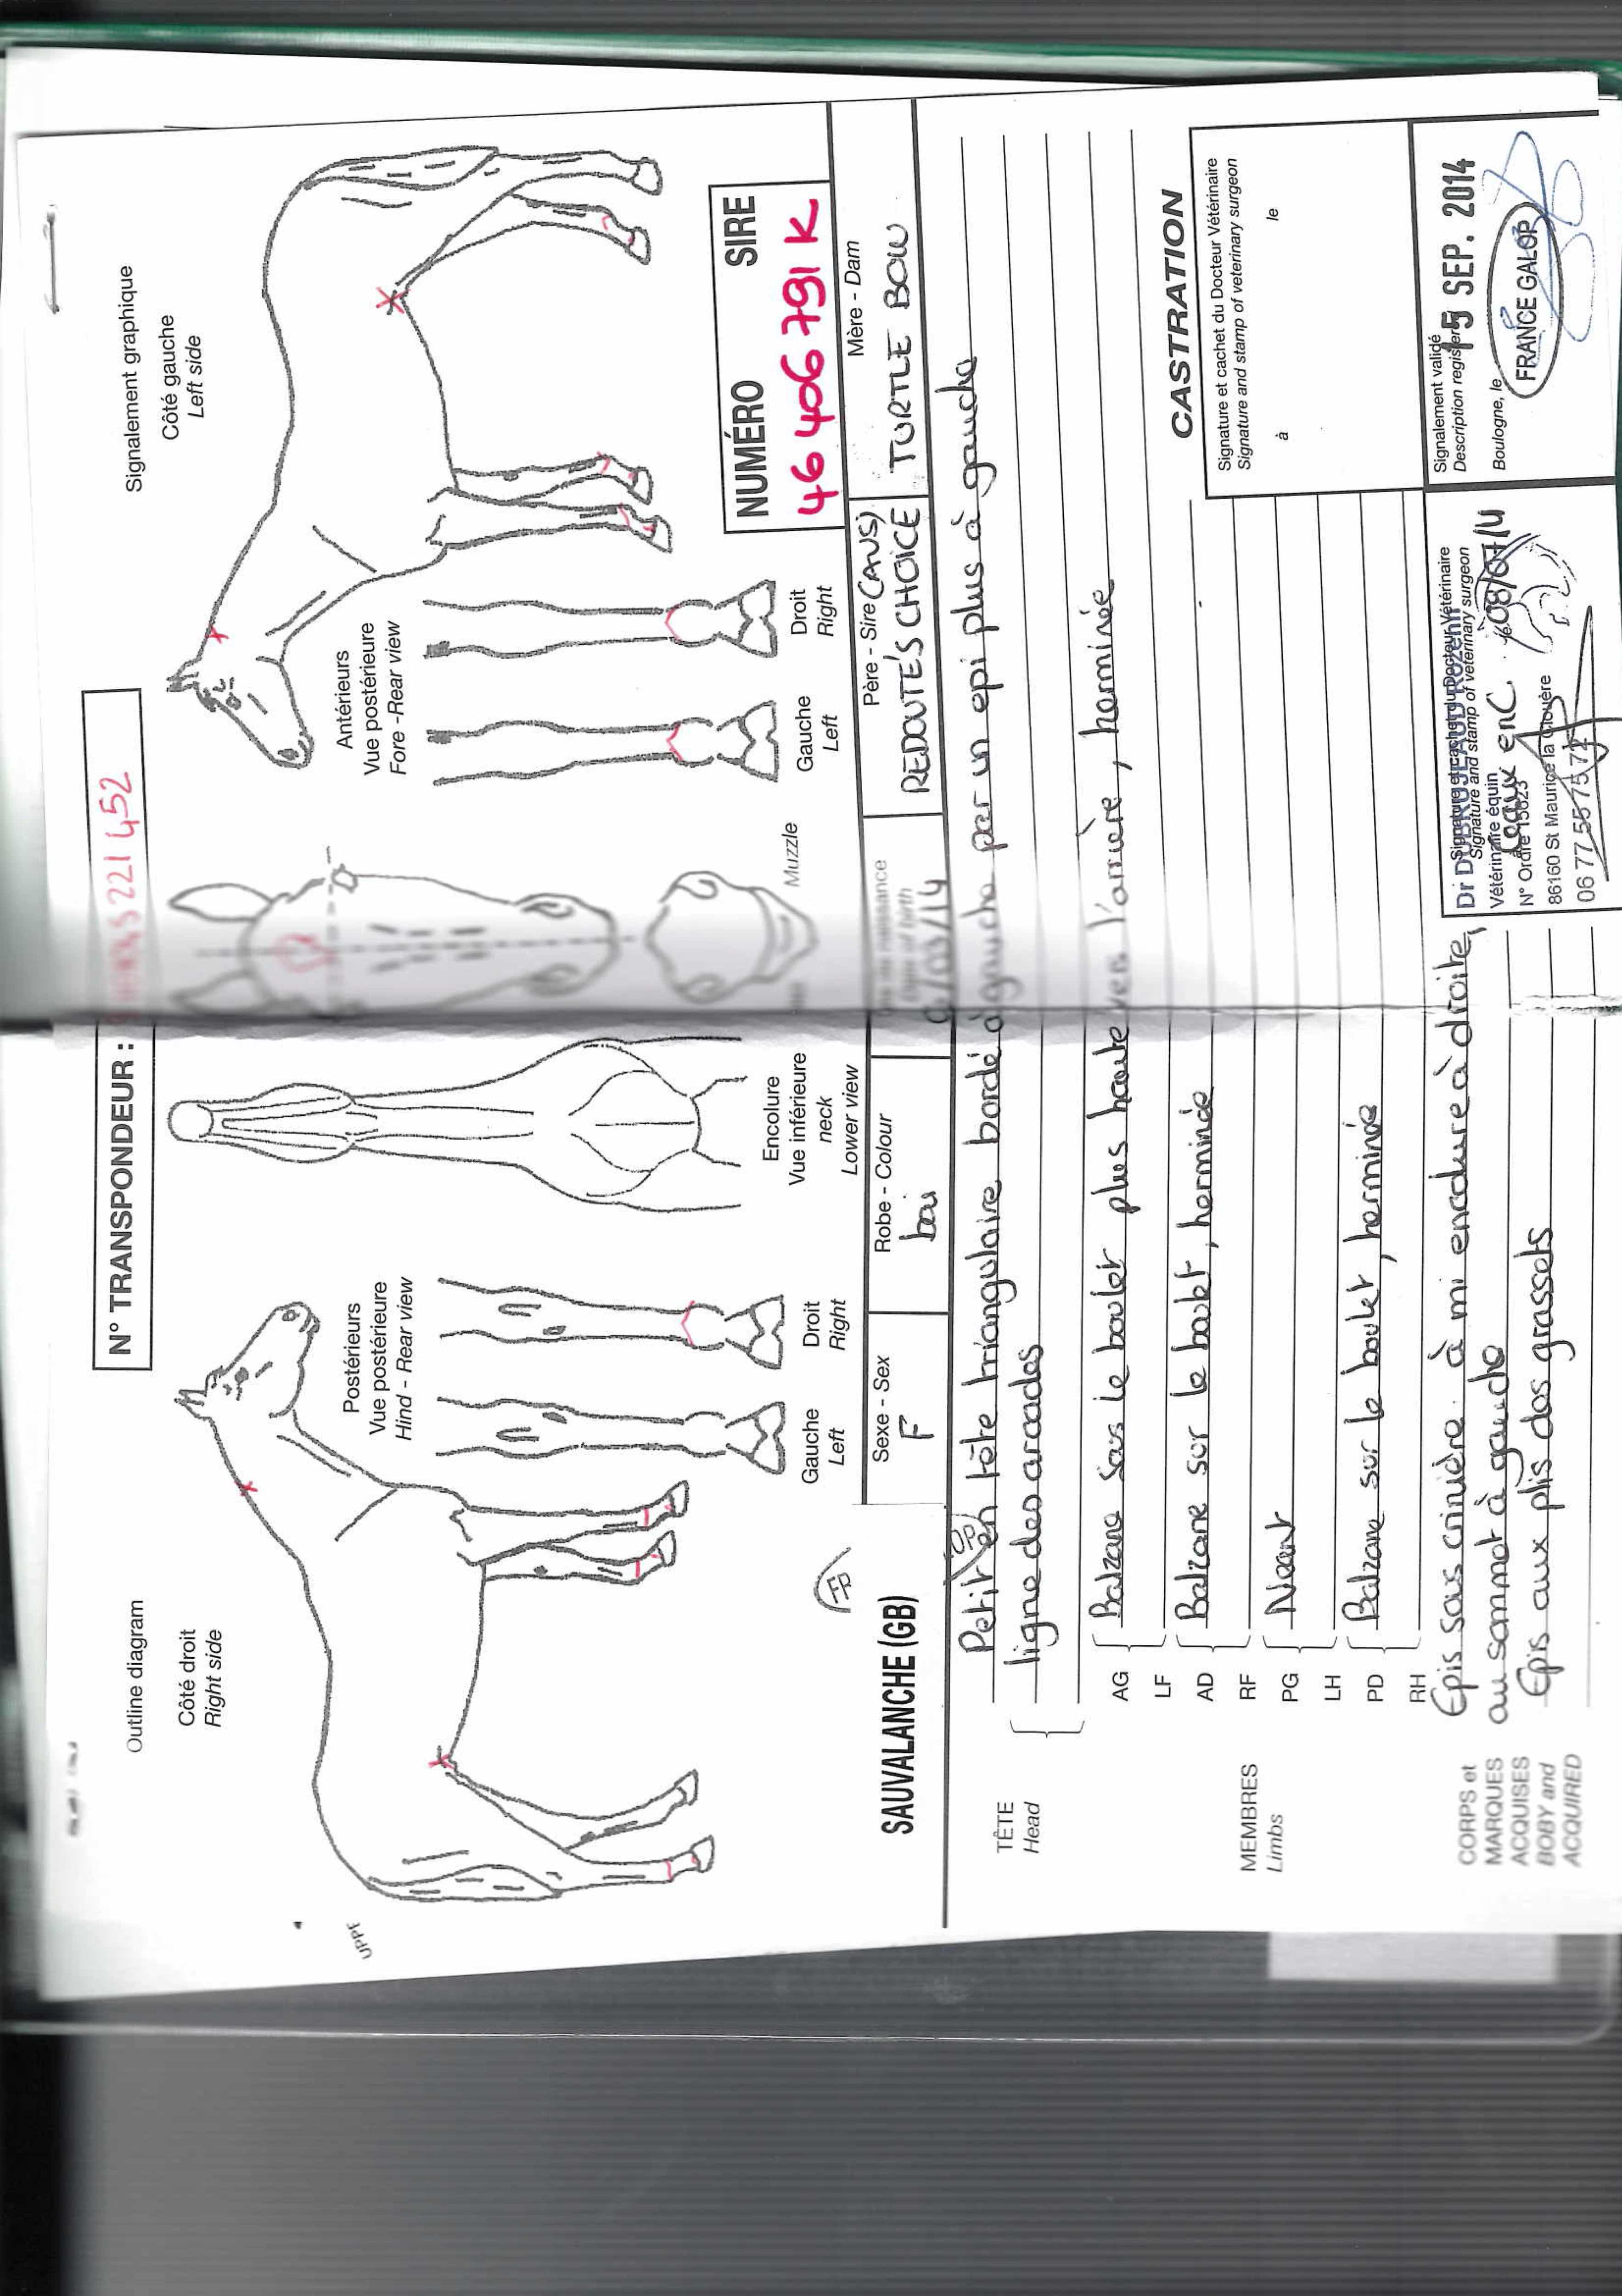 N° TRANSPONDEUR : 221 452
Outline diagram
Côté droit
Right side
Signalement graphique
Côté gauche
Left side
Postérieurs
Vue postérieure
Hind - Rear view
Gauche
Left
Droit
Right
Encolure
Vue inférieure
neck
Lower view
Muzzle
Antérieurs
Vue postérieure
Fore -Rear view
Gauche
Left
Droit
Right
UPPE
NUMÉRO SIRE
46 406 791 K
SAUVALANCHE (GB)
Sexe - Sex
F
Robe - Colour
bai
naissance
of birth
/03/14
Père - Sire (AUS)
REDOUTE'S CHOICE
Mère - Dam
TURTLE BOW
TÊTE
Head
Petit en tête triangulaire bordé à gauche par un epi plus à gauche
ligne des arcades
MEMBRES
Limbs
AG
LF
Balzane sous le boulet plus haute vers l'arrière, herminée
AD
RF
Balzane sur le boulet, herminée
PG
LH
Neant
PD
RH
Balzane sur le boulet, herminée
CORPS et
MARQUES
ACQUISES
BOBY and
ACQUIRED
Epis sous crinière à mi encolure à droite,
au sommet à gauche
Epis aux plis des grassets
CASTRATION
Signature et cachet du Docteur Vétérinaire
Signature and stamp of veterinary surgeon
à le
Signature et cachet du Docteur Vétérinaire
Signature and stamp of veterinary surgeon
Vétérinaire équin
N° Ordre 15823
86160 St Maurice la Clouère
06 77 55 75 72
08/07/14
Signalement validé
Description register
Boulogne, le 15 SEP. 2014
FRANCE GALOP